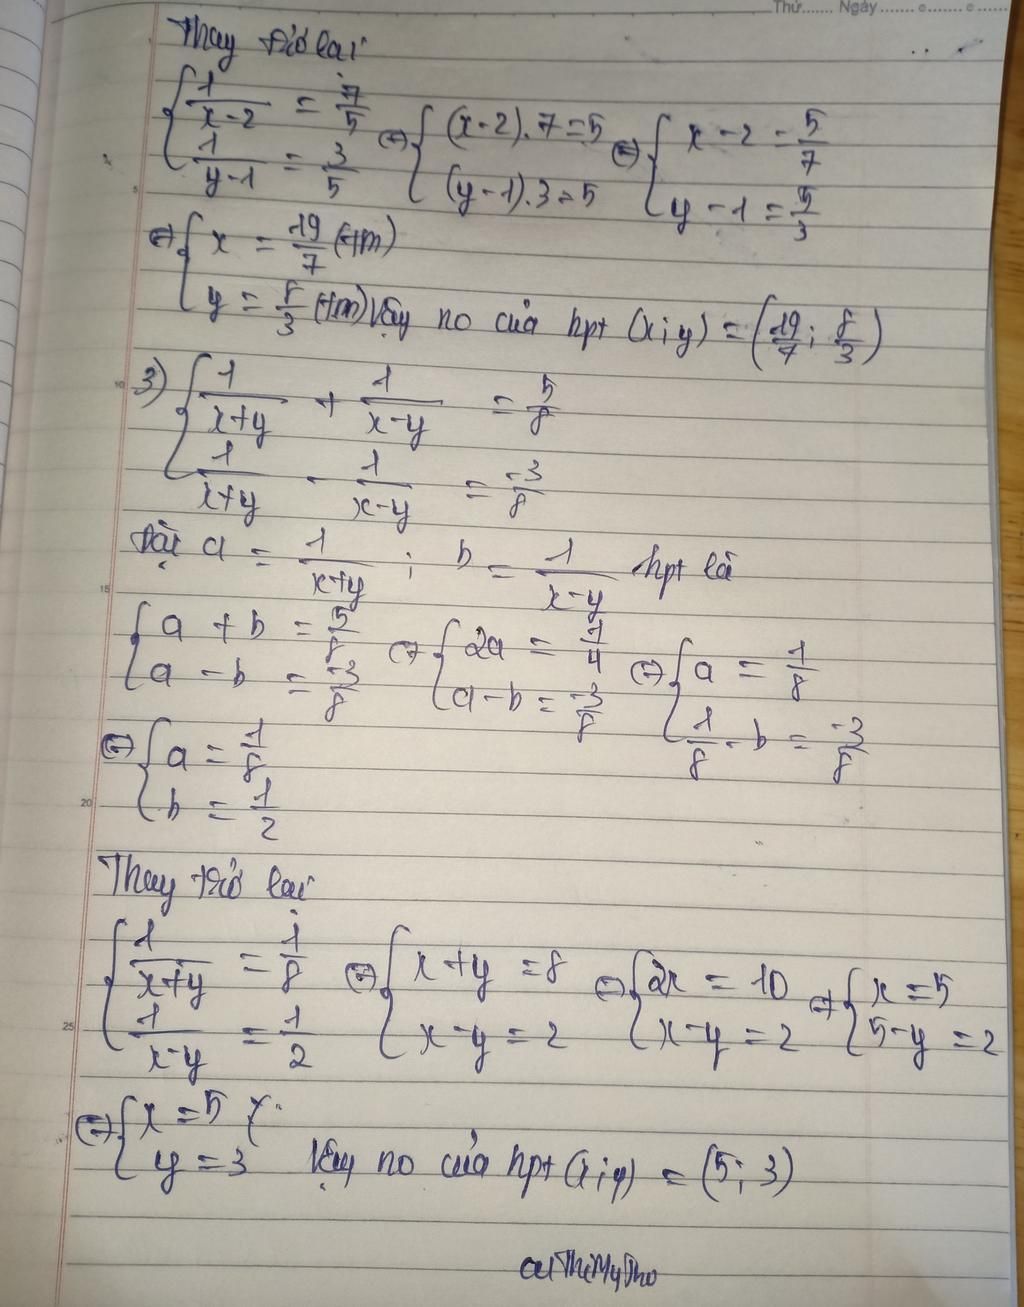 Thứ....... Ngày ....... ..... .....
Thay trở lại
{ 1/(x-2) = 7/5 ; 1/(y-1) = 3/5 (=) { (x-2).7=5 ; (y-1).3=5 (=) { x-2=5/7 ; y-1=5/3
(=) { x = 19/7 (tm)
y = 8/3 (tm) Vậy no của hpt (x;y) = (19/7; 8/3)
3) { 1/(x+y) + 1/(x-y) = 5/8
1/(x+y) - 1/(x-y) = -3/8
Đặt a = 1/(x+y) ; b = 1/(x-y) hpt là
{ a + b = 5/8 ; a - b = -3/8 (=) { 2a = 1/4 ; a-b = -3/8 (=) { a = 1/8 ; 1/8 - b = -3/8
(=) { a = 1/8
b = 1/2
Thay trở lại
{ 1/(x+y) = 1/8 ; 1/(x-y) = 1/2 (=) { x+y = 8 ; x-y = 2 (=) { 2x = 10 ; x-y = 2 (=) { x = 5 ; 5-y = 2
(=) { x = 5
y = 3 Vậy no của hpt (x;y) = (5; 3)
5
10
15
20
25